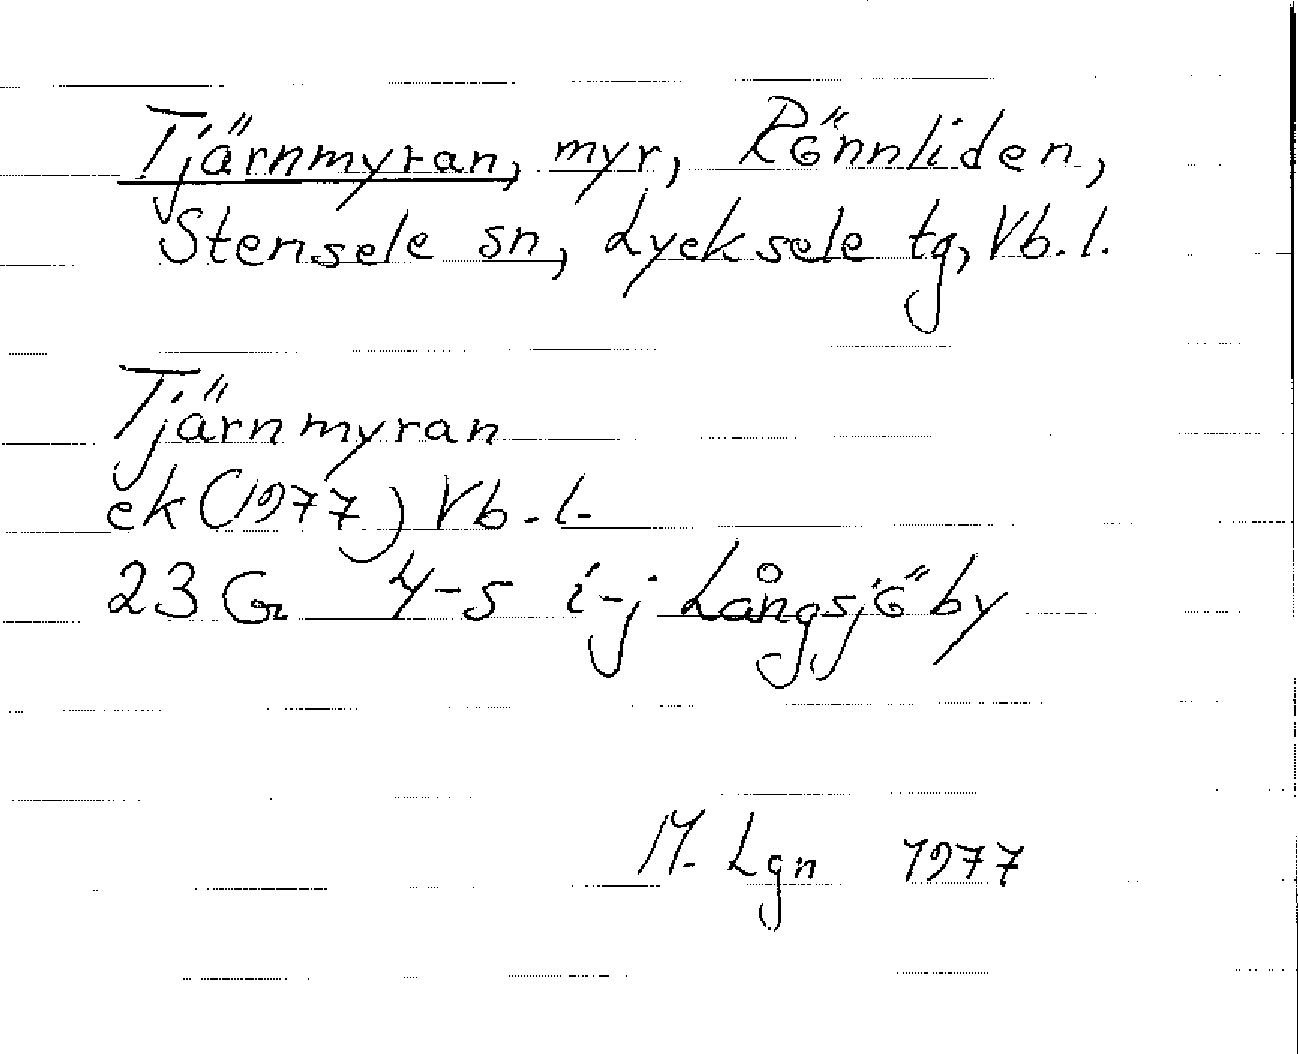 Tjärnmyran, myr, Rönnliden,
Stensele sn, Lycksele tg, Vb. l.
Tjärnmyran
ek (1977) Vb. l.
23 G 4-5 i-j Långsjöby
M. Lgn 1977